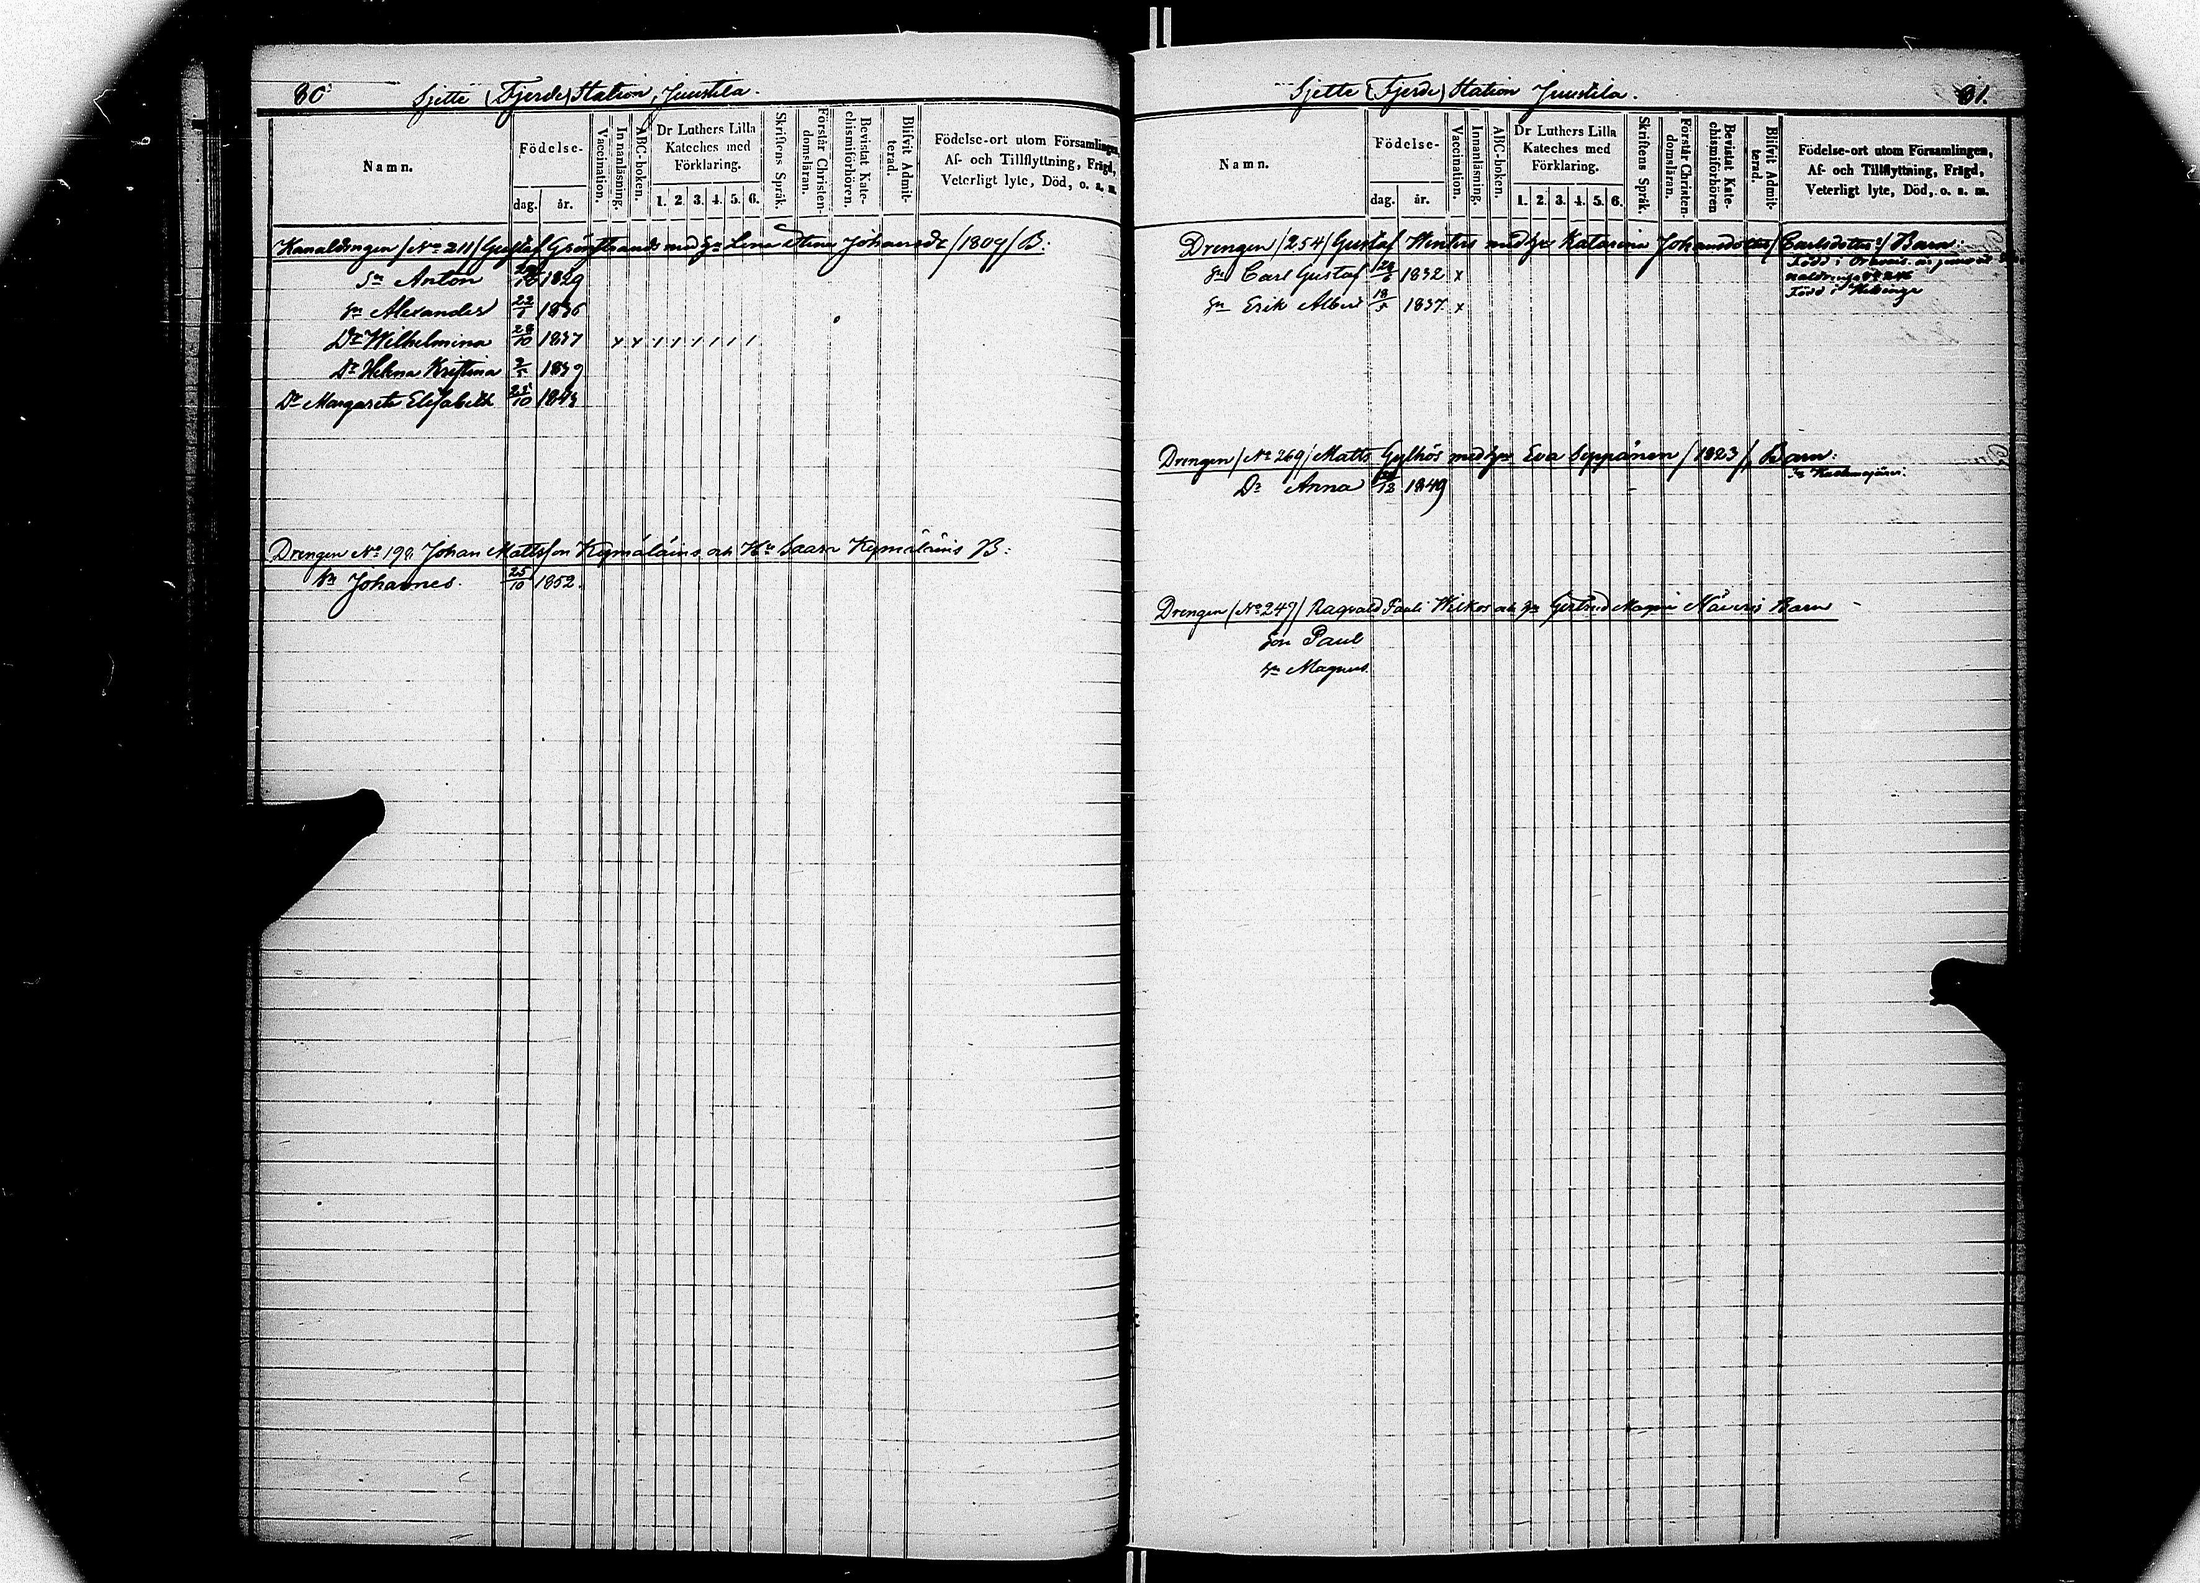 80
Sjette (Fjerde) Station, Juustila.
Namn.
Födelse-
dag.
år.
Vaccination.
Innanläsning.
ABC-boken.
Dr Luthers Lilla
Kateches med
Förklaring.
1. 2. 3. 4. 5. 6.
Skriftens Språk.
Förstår Christen-
domsläran.
Bevistat Kate-
chismiförhören.
Blifvit Admit-
terad.
Födelse-ort utom Församlingen,
Af- och Tillflyttning, Frägd,
Veterligt lyte, Död, o. s. m.
Kanaldrengen /No 211/ Gustaf Grönstrands med Hu Lena Stina Johansdt /1809/ B:
Sn Anton 1829
Sn Alexander 1836
Dr Wilhelmina 28/10 1837 x x / / / / / /
Dr Helena Kristina 1839
Dr Margareta Elisabeth 25/10 1843
Drengen No 190. Johan Mattsson Kymäläins och Hu Saara Kymäläinis B:
Sn Johannes. 25/10 1852.
Sjette (Fjerde) Station Juustila.
81.
Namn.
Födelse-
dag.
år.
Vaccination.
Innanläsning.
ABC-boken.
Dr Luthers Lilla
Kateches med
Förklaring.
1. 2. 3. 4. 5. 6.
Skriftens Språk.
Förstår Christen-
domsläran.
Bevistat Kate-
chismiförhören
Blifvit Admit-
terad.
Födelse-ort utom Församlingen,
Af- och Tillflyttning, Frägd,
Veterligt lyte, Död, o. s. m.
Drengen /254/ Gustaf Winters med Hu Katarina Johansdotter /Carlsdotter/ Barn:
Sn Carl Gustaf 1832 x Född i
Sn Erik Albert 18/5 1837 x Född i Helsinge
Drengen /No 269/ Matts Gylkös med Hu Eva Seppänen /1823/, Barn:
Dr Anna 1849
Drengen /No 247/ Ragvald Pauli Wilkos och Hu Gertrud Magni Näveris Barn
Son Paul
Sn Magnus